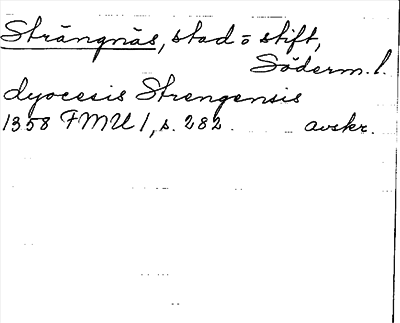 Strängnäs, stad o stift,
Söderm. l.
dyocesis Strengensis
1358 FMU 1, s. 282. avskr.